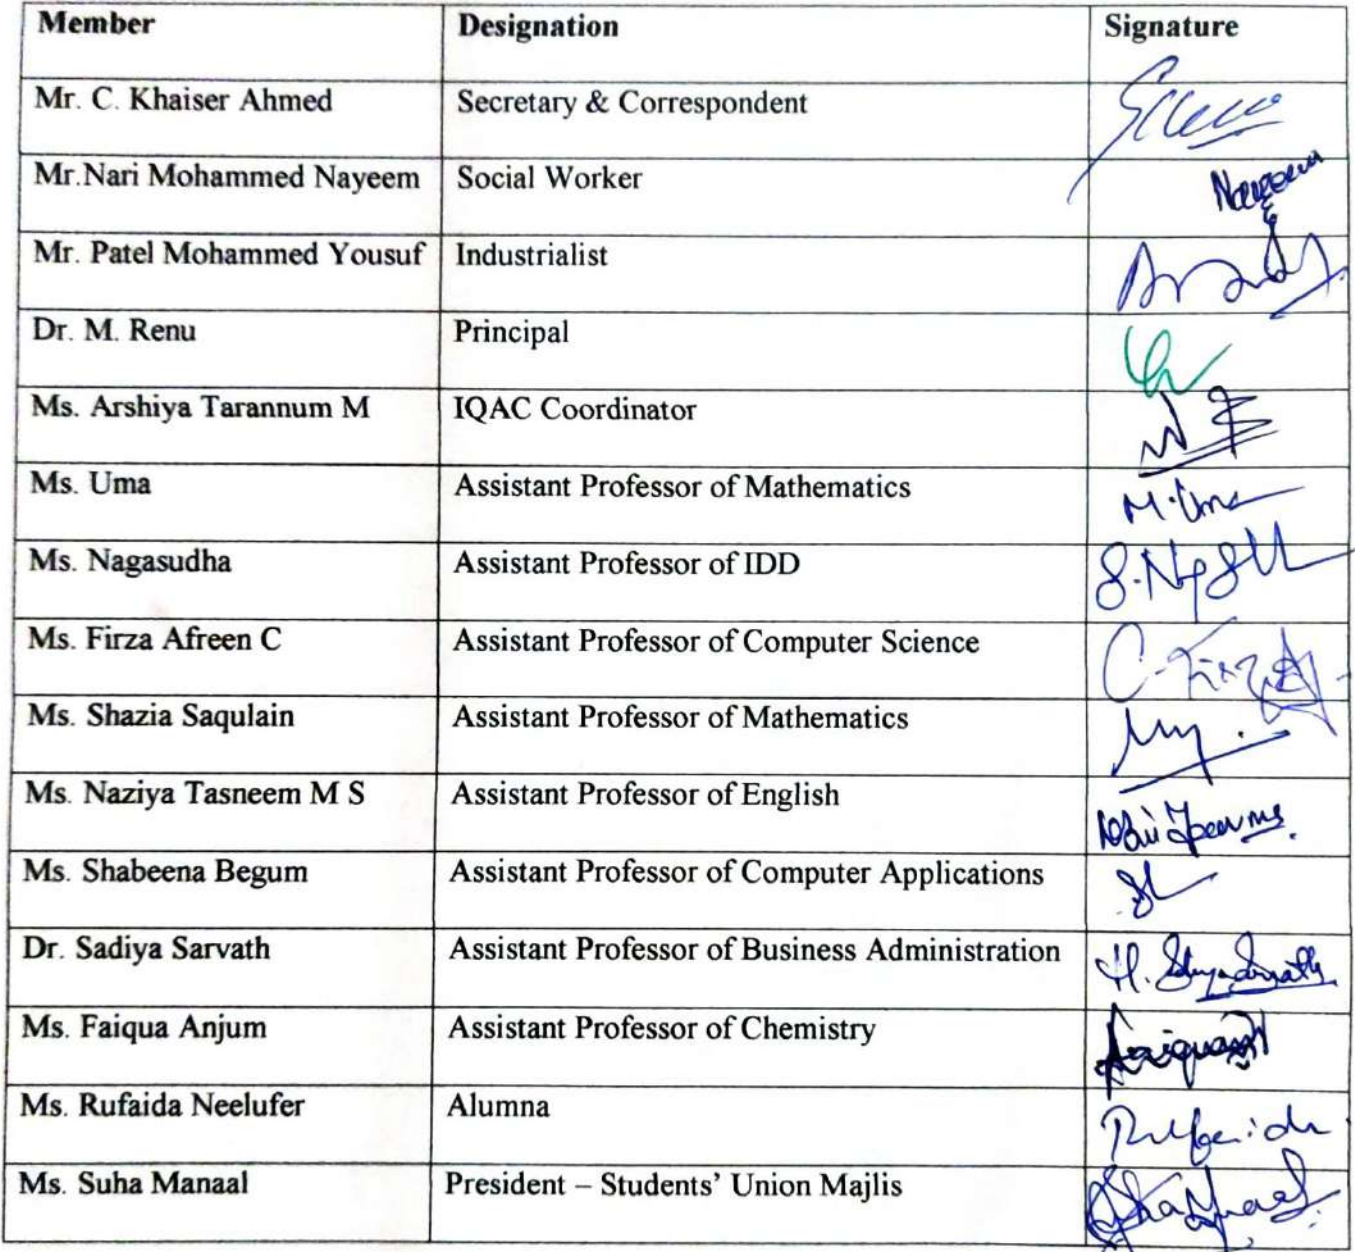 Member Designation Signature
Mr. C. Khaiser Ahmed Secretary & Correspondent
Mr.Nari Mohammed Nayeem Social Worker Nayeem
Mr. Patel Mohammed Yousuf Industrialist
Dr. M. Renu Principal
Ms. Arshiya Tarannum M IQAC Coordinator
Ms. Uma Assistant Professor of Mathematics M.Uma
Ms. Nagasudha Assistant Professor of IDD
Ms. Firza Afreen C Assistant Professor of Computer Science
Ms. Shazia Saqulain Assistant Professor of Mathematics
Ms. Naziya Tasneem M S Assistant Professor of English
Ms. Shabeena Begum Assistant Professor of Computer Applications
Dr. Sadiya Sarvath Assistant Professor of Business Administration
Ms. Faiqua Anjum Assistant Professor of Chemistry
Ms. Rufaida Neelufer Alumna
Ms. Suha Manaal President – Students’ Union Majlis